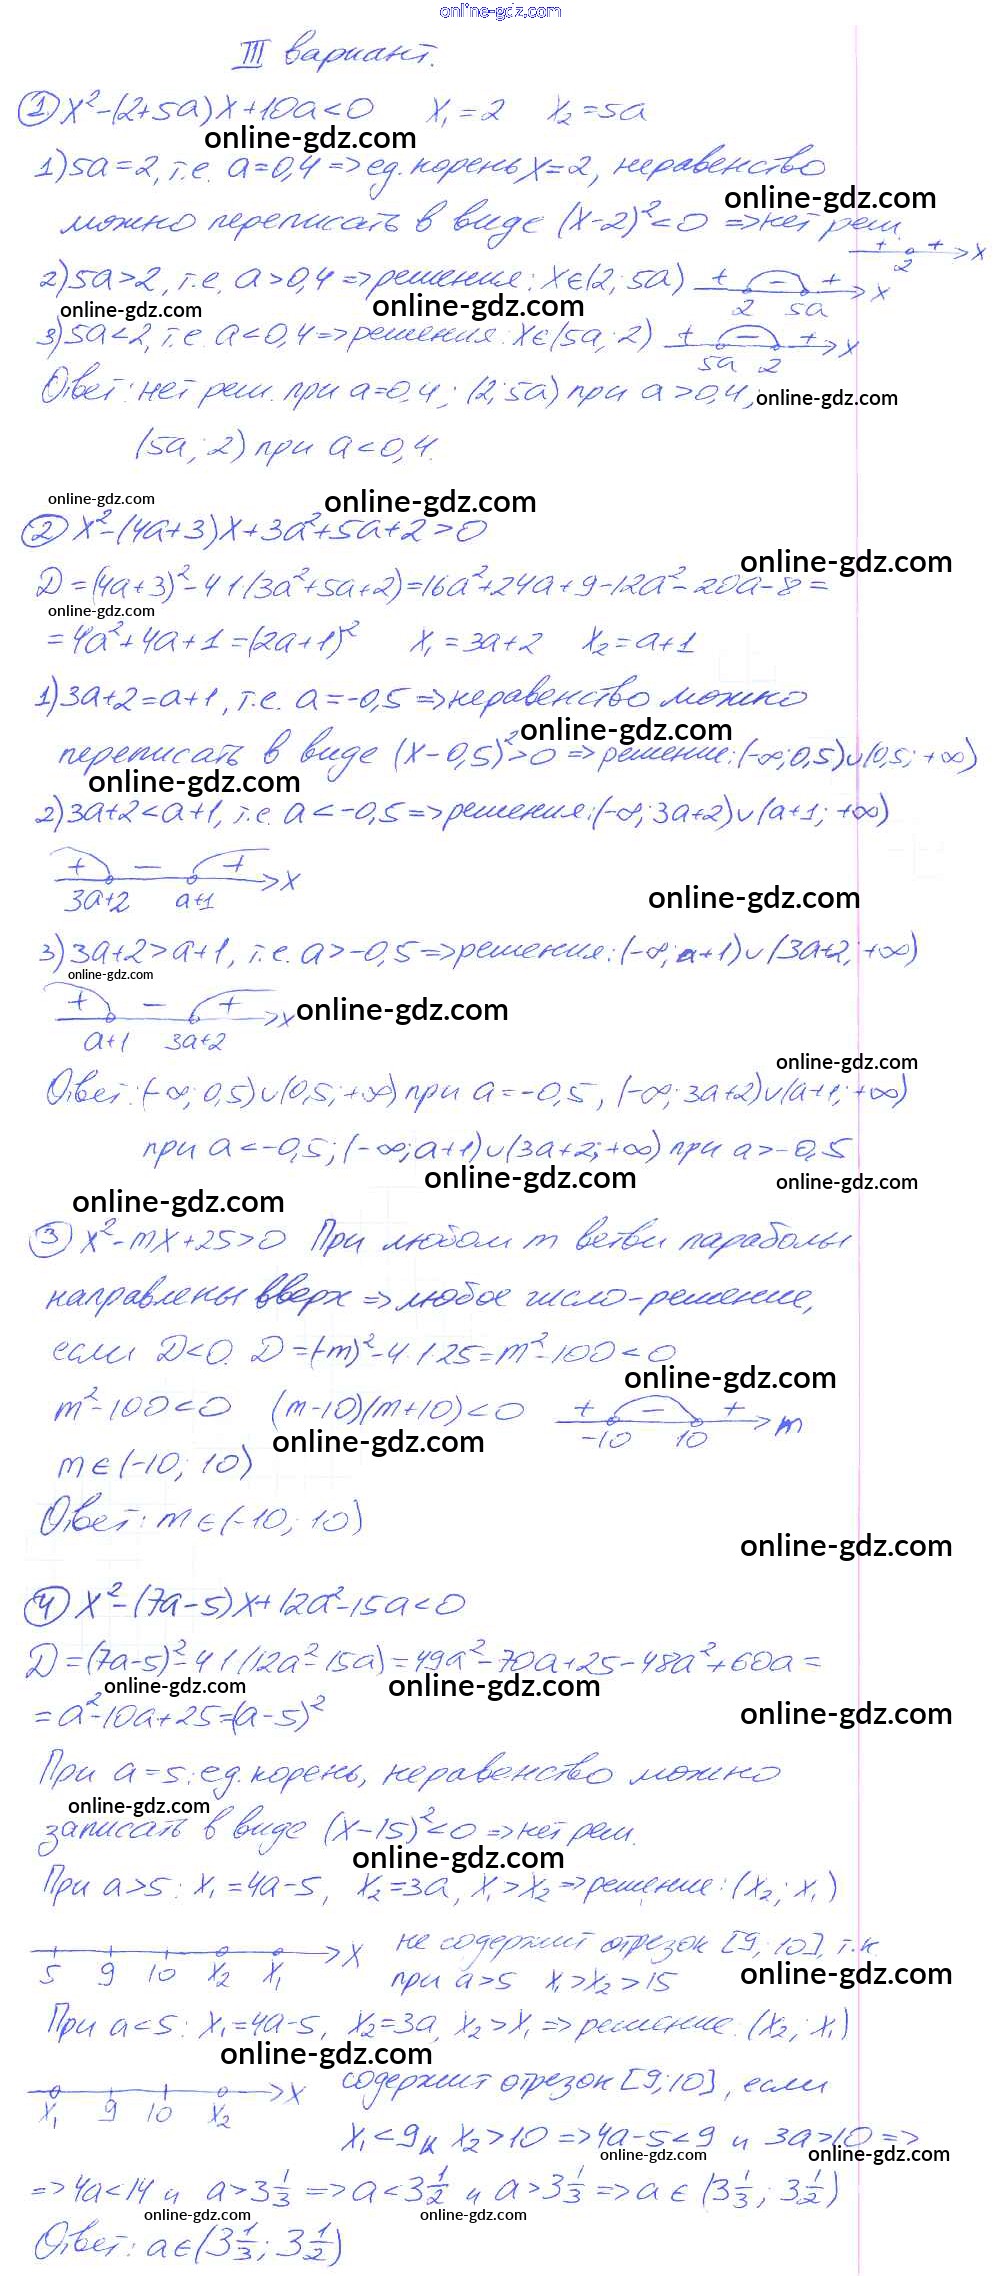 online-gdz.com
III вариант.
① x²-(2+5a)x+10a<0 x₁=2 x₂=5a
online-gdz.com
1) 5a=2, т.е. a=0,4 => ед. корень x=2, неравенство
online-gdz.com
можно переписать в виде (x-2)²<0 => нет реш.
+ + x
2
2) 5a>2, т.е. a>0,4 => решения: x∈(2; 5a) + - + x
online-gdz.com online-gdz.com 2 5a
3) 5a<2, т.е. a<0,4 => решения: x∈(5a; 2) + - + x
5a 2
Ответ: нет реш. при a=0,4; (2; 5a) при a>0,4; online-gdz.com
(5a; 2) при a<0,4.
online-gdz.com online-gdz.com
② x²-(4a+3)x+3a²+5a+2>0
online-gdz.com
D=(4a+3)²-4·1·(3a²+5a+2)=16a²+24a+9-12a²-20a-8=
online-gdz.com
=4a²+4a+1=(2a+1)² x₁=3a+2 x₂=a+1
1) 3a+2=a+1, т.е. a=-0,5 => неравенство можно
online-gdz.com
переписать в виде (x-0,5)²>0 => решение: (-∞; 0,5)∪(0,5; +∞)
online-gdz.com
2) 3a+2<a+1, т.е. a<-0,5 => решения: (-∞; 3a+2)∪(a+1; +∞)
+ - + x
3a+2 a+1
online-gdz.com
3) 3a+2>a+1, т.е. a>-0,5 => решения: (-∞; a+1)∪(3a+2; +∞)
online-gdz.com
+ - + x online-gdz.com
a+1 3a+2
online-gdz.com
Ответ: (-∞; 0,5)∪(0,5; +∞) при a=-0,5, (-∞; 3a+2)∪(a+1; +∞)
при a<-0,5; (-∞; a+1)∪(3a+2; +∞) при a>-0,5
online-gdz.com online-gdz.com
online-gdz.com
③ x²-mx+25>0 При любом m ветви параболы
направлены вверх => любое число-решение,
если D<0. D=(-m)²-4·1·25=m²-100<0
online-gdz.com
m²-100<0 (m-10)(m+10)<0 + - + m
online-gdz.com -10 10
m∈(-10; 10)
Ответ: m∈(-10; 10)
online-gdz.com
④ x²-(7a-5)x+12a²-15a<0
D=(7a-5)²-4·1·(12a²-15a)=49a²-70a+25-48a²+60a=
online-gdz.com online-gdz.com
=a²-10a+25=(a-5)²
online-gdz.com
При a=5: ед. корень, неравенство можно
online-gdz.com
записать в виде (x-15)²<0 => нет реш.
online-gdz.com
При a>5: x₁=4a-5, x₂=3a, x₁>x₂ => решение: (x₂; x₁)
x не содержит отрезок [9; 10], т.к.
5 9 10 x₂ x₁ при a>5 x₁>x₂>15
online-gdz.com
При a<5: x₁=4a-5, x₂=3a, x₂>x₁ => решение: (x₂; x₁)
online-gdz.com
x содержит отрезок [9; 10], если
x₁ 9 10 x₂
x₁<9 и x₂>10 => 4a-5<9 и 3a>10 =>
online-gdz.com online-gdz.com
=> 4a<14 и a>3 1/3 => a<3 1/2 и a>3 1/3 => a∈(3 1/3; 3 1/2)
online-gdz.com online-gdz.com
Ответ: a∈(3 1/3; 3 1/2)